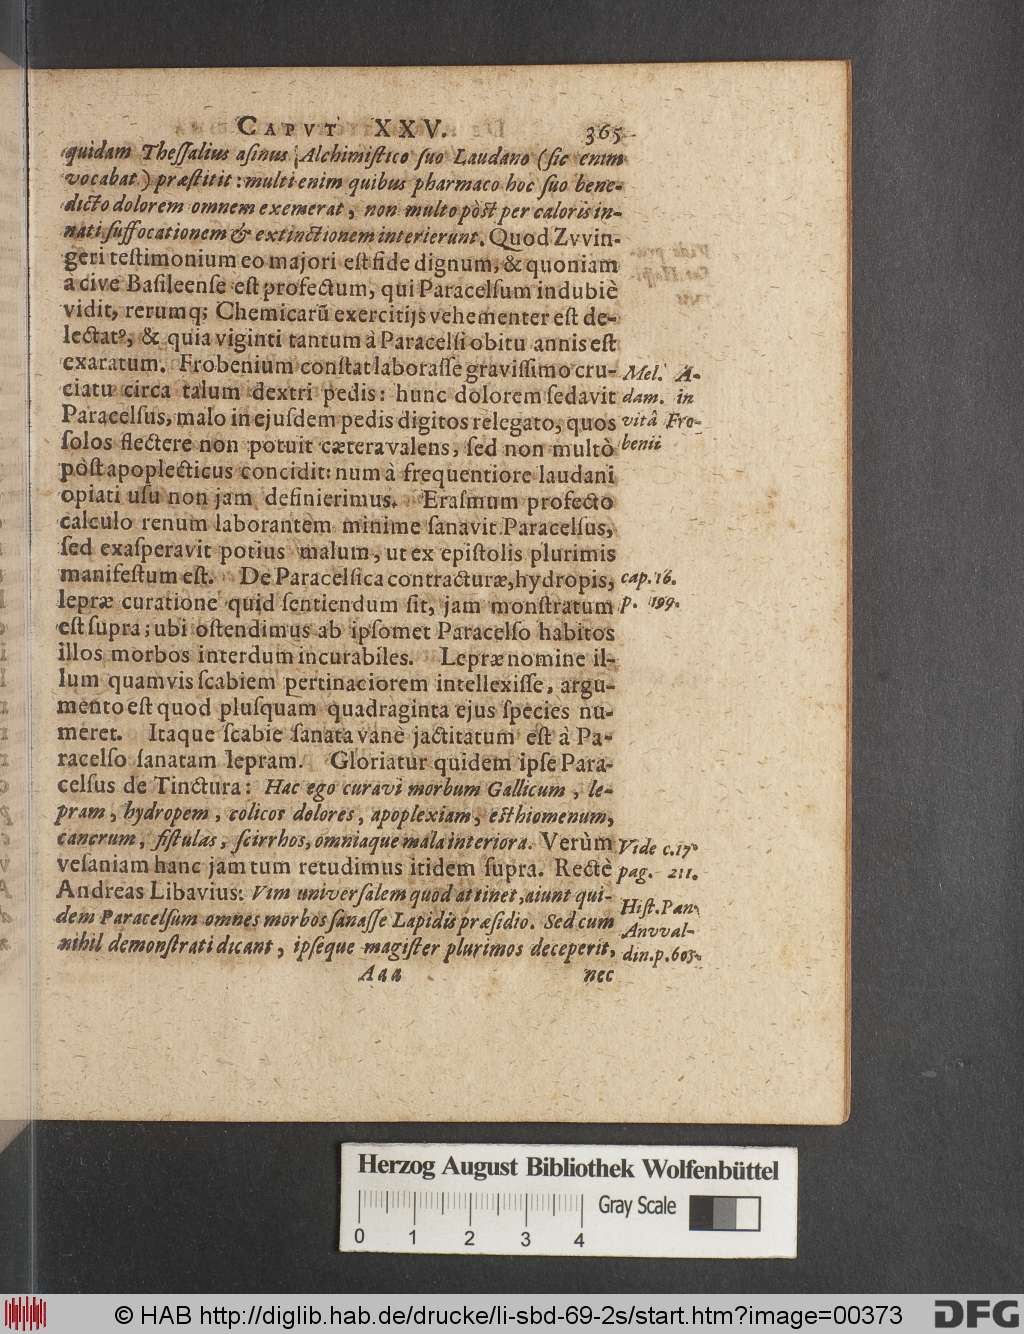 CAPVT XXV. 365
quidam Theſſalius aſinus Alchimiſtico ſuo Laudano (ſic enim
vocabat) præſtitit: multi enim quibus pharmaco hoc ſuo bene-
dicto dolorem omnem exemerat, non multo pòſt per caloris in-
nati ſuffocationem & extinctionem interierunt. Quod Zvvin-
geri teſtimonium eo majori eſt fide dignum, & quoniam
à cive Baſileenſe eſt profectum, qui Paracelſum indubiè
vidit, rerumq; Chemicarū exercitijs vehementer eſt de-
lectatꝰ, & quia viginti tantum à Paracelſi obitu annis eſt
exaratum. Frobenium conſtat laboraſſe graviſſimo cru-
ciatu circa talum dextri pedis: hunc dolorem ſedavit
Paracelſus, malo in ejuſdem pedis digitos relegato, quos
ſolos flectere non potuit cætera valens, ſed non multò
pòſt apoplecticus concidit: num à frequentiore laudani
opiati uſu non jam definierimus. Eraſmum profecto
calculo renum laborantem minime ſanavit Paracelſus,
ſed exaſperavit potius malum, ut ex epiſtolis plurimis
manifeſtum eſt. De Paracelſica contracturæ, hydropis,
lepræ curatione quid ſentiendum ſit, jam monſtratum
eſt ſupra; ubi oſtendimus ab ipſomet Paracelſo habitos
illos morbos interdum incurabiles. Lepræ nomine il-
lum quamvis ſcabiem pertinaciorem intellexiſſe, argu-
mento eſt quod pluſquam quadraginta ejus ſpecies nu-
meret. Itaque ſcabie ſanata vanè jactitatum eſt à Pa-
racelſo ſanatam lepram. Gloriatur quidem ipſe Para-
celſus de Tinctura: Hac ego curavi morbum Gallicum, le-
pram, hydropem, colicos dolores, apoplexiam, eſthiomenum,
cancrum, fiſtulas, ſcirrhos, omniaque mala interiora. Verùm
veſaniam hanc jam tum retudimus itidem ſupra. Rectè
Andreas Libavius: Vim univerſalem quod attinet, aiunt qui-
dem Paracelſum omnes morbos ſanaſſe Lapidis præſidio. Sed cum
nihil demonſtrati dicant, ipſeque magiſter plurimos deceperit,
Aaa nec
Mel. A-
dam. in
vitâ Fro-
benii
cap. 16.
p. 199.
Vide c. 17
pag. 211.
Hiſt. Pan
Anvval-
din. p. 605.
Herzog August Bibliothek Wolfenbüttel
Gray Scale
0 1 2 3 4
© HAB http://diglib.hab.de/drucke/li-sbd-69-2s/start.htm?image=00373
DFG